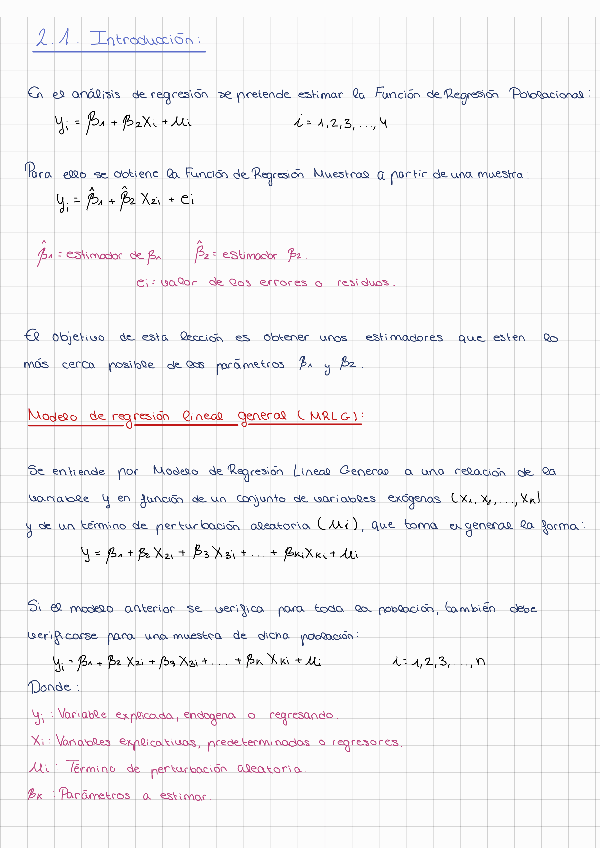 2.1. Introducción:
En el análisis de regresión se pretende estimar la Función de Regresión Poblacional:
yi = β1 + β2Xi + μi    i = 1,2,3, ..., 4
Para ello se obtiene la Función de Regresión Muestral a partir de una muestra
yi = β̂1 + β̂2 X2i + ei
β̂1 = estimador de β1    β̂2 = estimador β2.
ei: valor de los errores o residuos.
El objetivo de esta lección es obtener unos estimadores que esten lo
más cerca posible de los parámetros β1 y β2.
Modelo de regresión lineal general (MRLG):
Se entiende por Modelo de Regresión Lineal General a una relación de la
variable y en función de un conjunto de variables exógenas (X1, X2, ..., XK)
y de un término de perturbación aleatoria (μi), que toma en general la forma:
y = β1 + β2 X2i + β3 X3i + ... + βKi XKi + μi
Si el modelo anterior se verifica para toda la población, también debe
verificarse para una muestra de dicha población:
yi = β1 + β2 X2i + β3 X3i + ... + βK XKi + μi    i = 1,2,3, ..., n
Donde:
yi: Variable explicada, endogena o regresando.
Xi: Variables explicativas, predeterminadas o regresores.
μi: Término de perturbación aleatoria
βK: Parámetros a estimar.